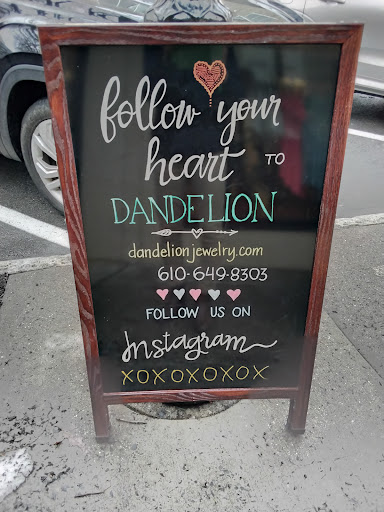 follow your
heart TO
DANDELION
dandelionjewelry.com
610-649-8303
FOLLOW US ON
Instagram
XOXOXOXOX